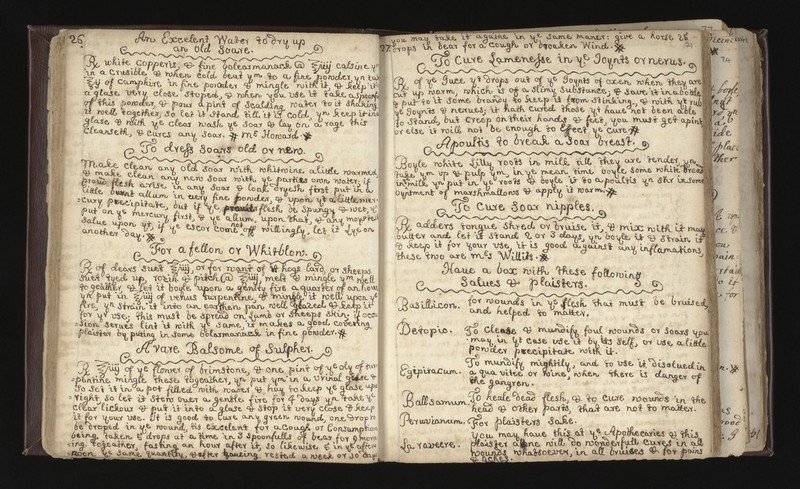 26
An Excelent Water to dry up
an old Soare.
℞ white Copperis, & fine bolearmanack @ ℥iiij calsine ym
in a Crusible & when Cold beat ym to a fine powder yn take
℥j of Camphire in fine powder & mingle with it, & keep it in
a glass very close stoped, & when you use it take a spoonfull
of this powder, & pour a pint of Scalding water to it shaking
it well together, so let it stand till it is cold, yn keep it in a
glass & with ye clear wash ye Soar & lay on a rage this
Cleanseth, & Cures any Soar. Ms Howard.
To dress Soars old or new.
Make clean any old Soar with whitwine a little warmed
& make clean any new Soar with ye parties own water; if
proud flesh arise in any Soar & look dryesh first put in a
little burnt allum in very fine powder, & upon yt a little mer=
=cury precipitate, but if ye flesh is Spungy & wet, yn
put on ye mercury first, & ye allum upon that, & any
Salue upon yt, if ye escor come not off willingly, let it lye on
another day.
For a fellon or Whitblow.
℞ of dears suet ℥iiij, or for want of it hogs lard, or sheeps
suet tryed up, with pitch @ ℥iiij melt & mingle ym well
together, & let it boyle upon a gentle fire a quarter of an hour
yn put in ℥iiij of venus turpentine, & mingle it well upon ye
fire, yn strain it into an earthen pan well glazed & keep it
for yr use; this must be spread on lamb or sheeps skin; if occa
sion serues lint it with ye same, it makes a good Covering
plaister by puting in some bolearmanack in fine powder.
A rare Balsome of Sulpher.
℞ ℥iiij of ye flower of Brimstone, & one pint of ye oly of tur=
=pentine mingle these together, yn put ym in a Urinal glass &
So set it in a pot filled with sand & hay to keep ye glass up=
=right, so let it Stew over a gentle fire for 4 days yn take ye
Clear lickour & put it into a glass & stop it very close & keep
it for your use. It is good to Cure any green wound, one drop to
be droped in ye wound, tis excelent for a Cough or Consumption
being taken 5 drops at a time in 3 spoonfulls of bear for 9 morn
ing together, fasting an hour after it, so likewise in ye after
noon ye same quantity, & after haveing rested a week or 10 days
you may take it againe in ye same maner: give a horse 25
27 drops in bear for a Cough or broaken Wind.
To Cure Lamenesse in ye Joynts or nerues.
℞ of ye Juce yt drops out of ye Joynts of oxen when they are
cut up warm, which is of a slimy Substance; & save it in a botle
& put to it some brandy to keep is from stinking, & with yt rub
ye Joynts & nerues; it hath cured those yt haue not been able
to stand, but creep on their hands & feet, you must get apint
or else it will not be enough to effect ye cure.
Apoultis to break a Soar breast.
Boyle white Lilly roots in milk till they are tender yn
take ym up & pulp ym, in ye mean time boyle some white bread
in milk yn put in ye roots & boyle it to a poultis yn stir in some
oyntment of marshmallows & apply it warm.
To Cure Soar nipples.
℞ adders tongue shred or bruise it, & mix with it may
butter and let it stand 2 or 3 days, yn boyle it & strain it
& keep it for your use, it is good against any inflamations
these two are ms Willits.
Haue a box with these following
Salues & plaisters.
Basillicon. for wounds in ye flesh that must be bruised,
and helped to matter.
Deropic. To Clease & mundify foul wounds or soars you
may in yt case use it by its self, or use a little
powder precipitate with it.
Egipitacum. To mundify mightily, and to use it disolued in
aqua vitee or Wine, when there is danger of
the gangren.
Ballsanum. To heale dead flesh, & to cure wounds in the
head & other parts, that are not to matter.
Peruvianum. For plaisters Sake.
Laraveere. You may haue this at ye Apothecaries & this
plaister alone will do wonderfull Cures in all
wounds whatsoever, in all bruises & for pains
& aches.